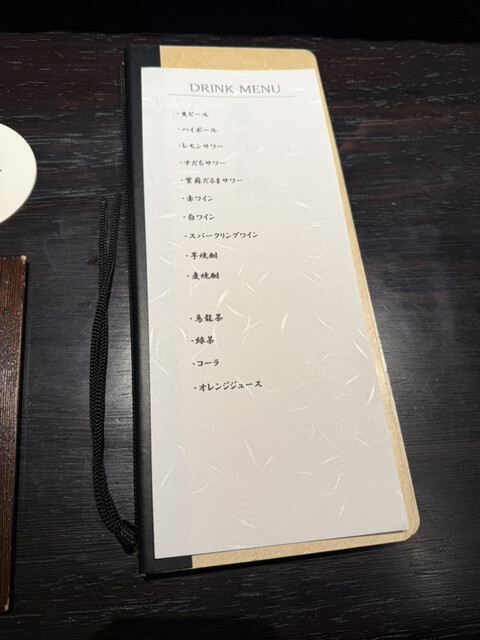 DRINK MENU
・生ビール
・ハイボール
・レモンサワー
・すだちサワー
・紫蘇だるまサワー
・赤ワイン
・白ワイン
・スパークリングワイン
・芋焼酎
・麦焼酎
・烏龍茶
・緑茶
・コーラ
・オレンジジュース